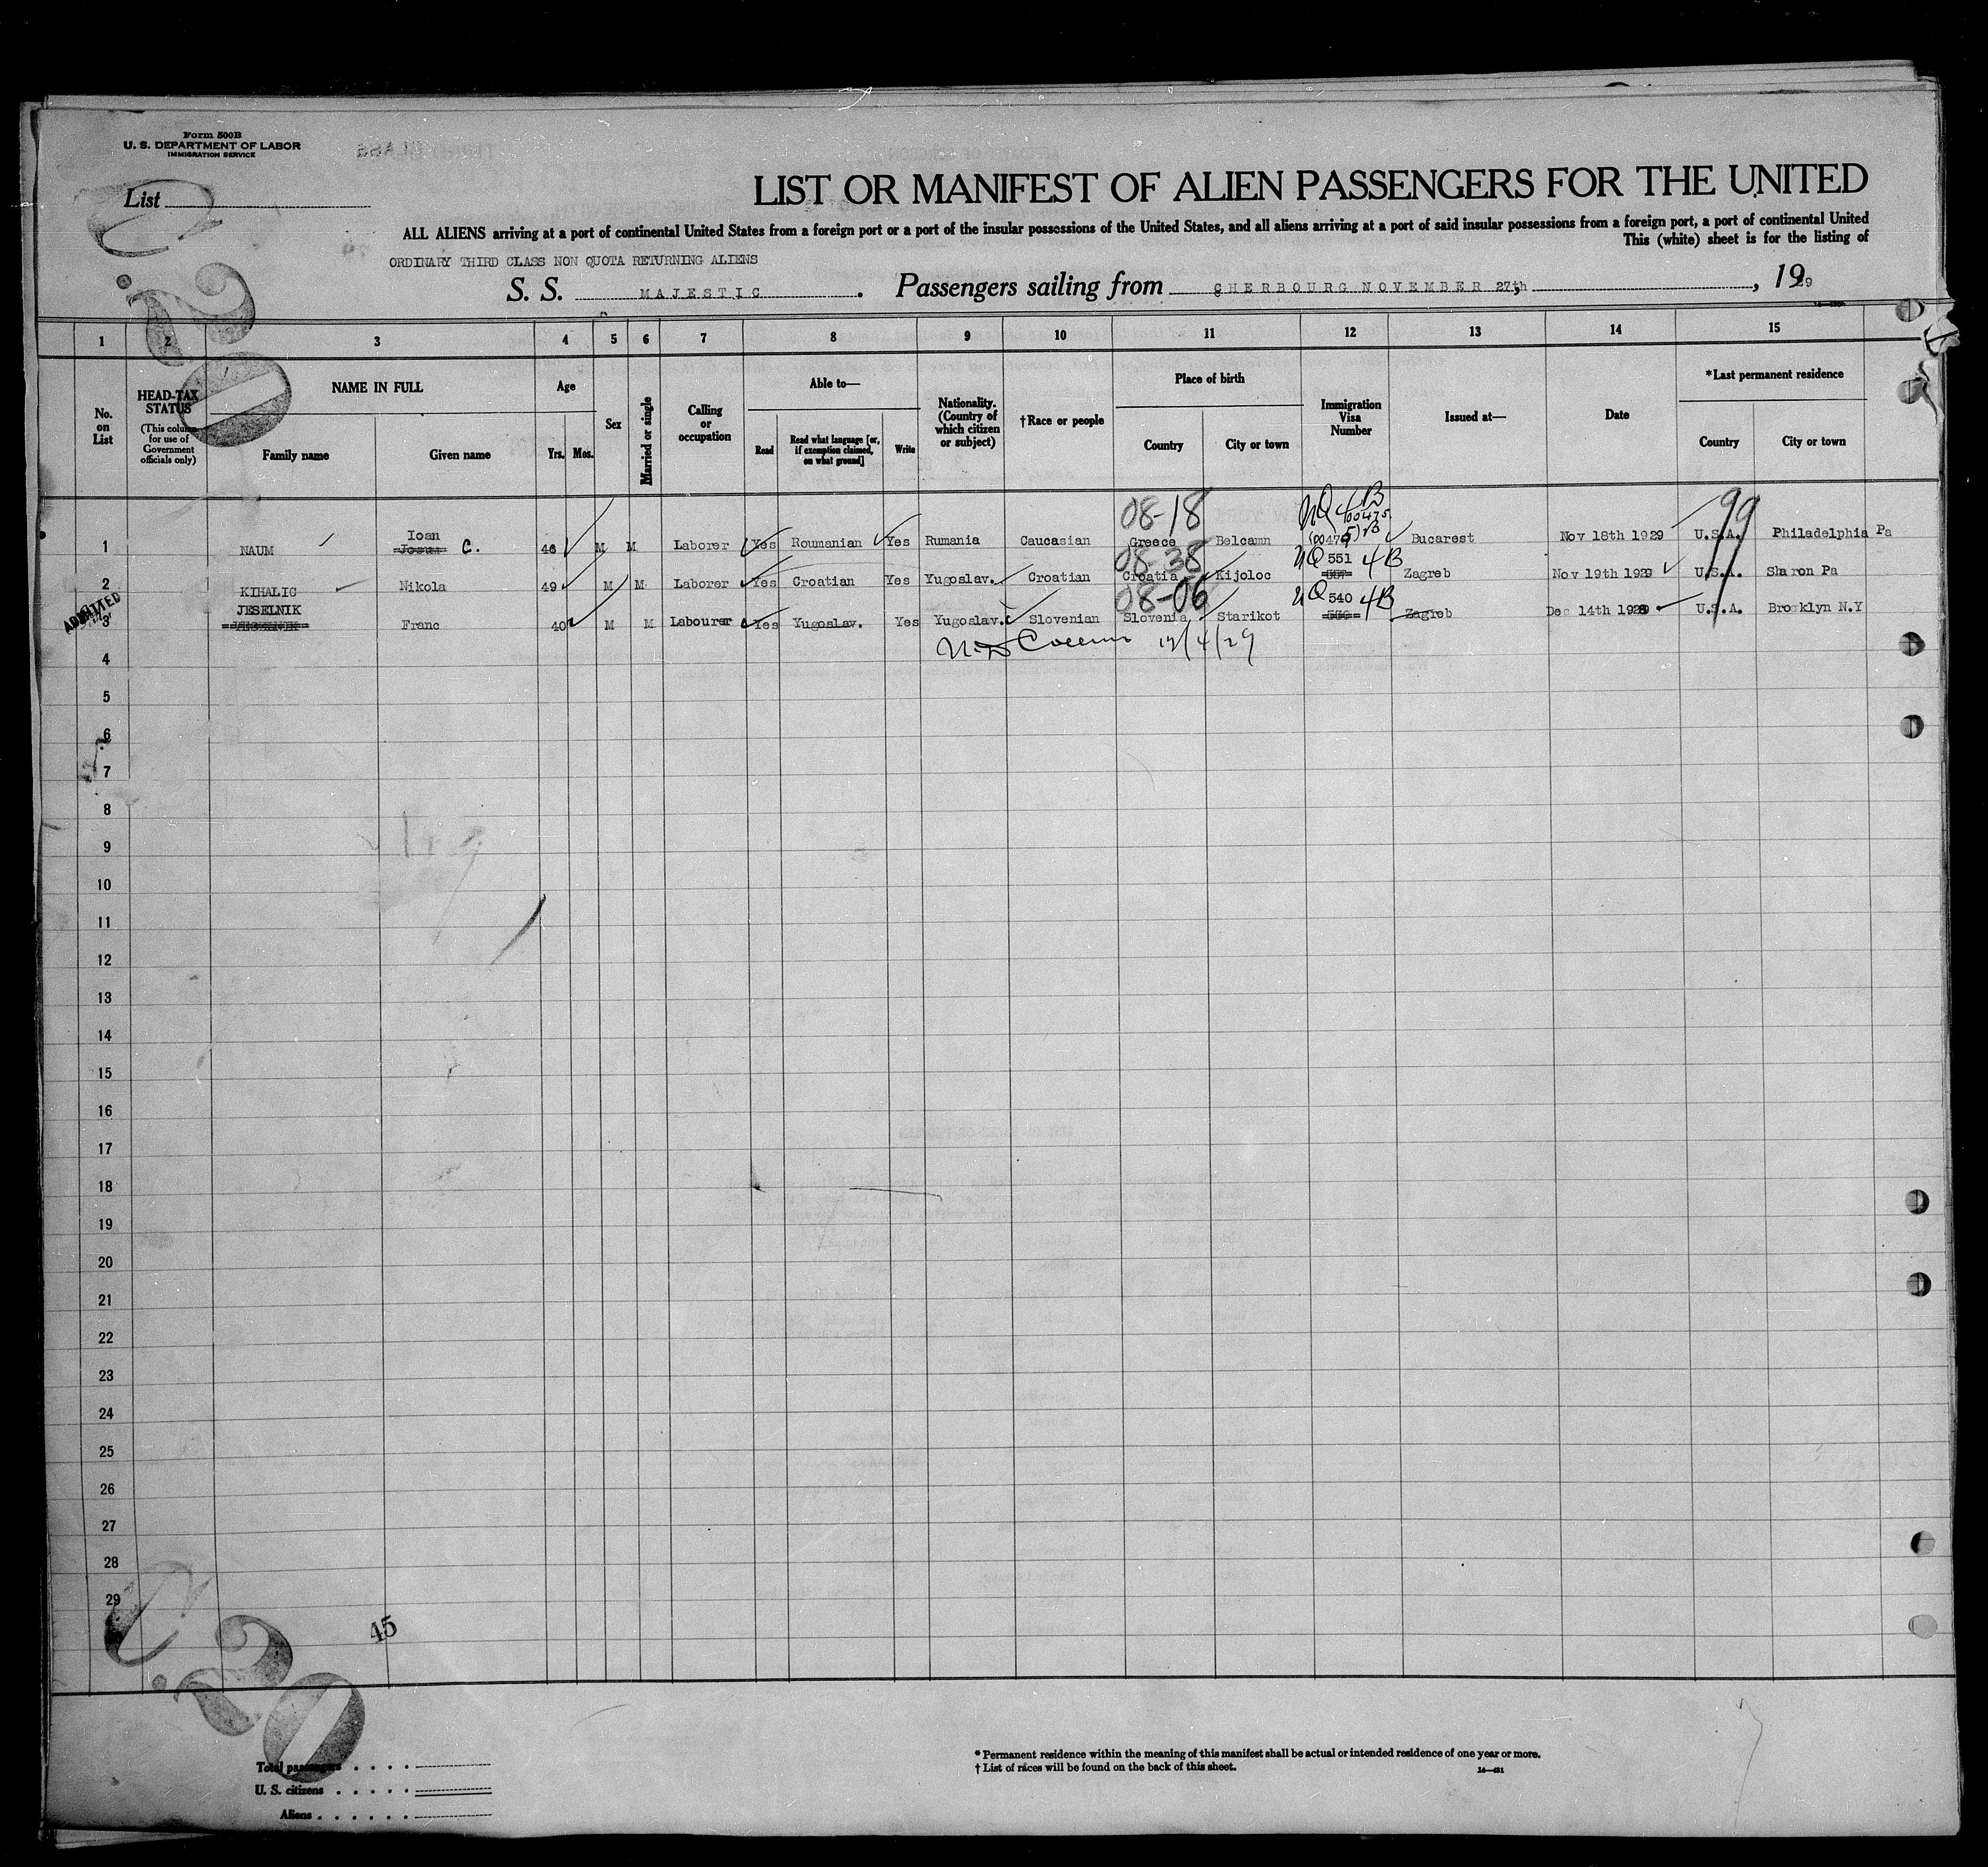 Form 500B
U. S. DEPARTMENT OF LABOR
IMMIGRATION SERVICE
List
LIST OR MANIFEST OF ALIEN PASSENGERS FOR THE UNITED
ALL ALIENS arriving at a port of continental United States from a foreign port or a port of the insular possessions of the United States, and all aliens arriving at a port of said insular possessions from a foreign port, a port of continental United
This (white) sheet is for the listing of
ORDINARY THIRD CLASS NON QUOTA RETURNING ALIENS
S. S. MAJESTIC. Passengers sailing from CHERBOURG NOVEMBER 27th, 1929
1 2 3 4 5 6 7 8 9 10 11 12 13 14 15
No. on List
HEAD-TAX STATUS (This column for use of Government officials only)
NAME IN FULL
Family name Given name
Age
Yrs. Mos.
Sex
Married or single
Calling or occupation
Able to—
Read Read what language [or, if exemption claimed, on what ground] Write
Nationality. (Country of which citizen or subject)
†Race or people
Place of birth
Country City or town
Immigration Visa Number
Issued at—
Date
*Last permanent residence
Country City or town
08-18 NQ 4B 99
Ioan
1 NAUM C. 46 M M Laborer Yes Roumanian Yes Rumania Caucasian Greece Belcamn Bucarest Nov 18th 1929 U.S.A. Philadelphia Pa
08-38 NQ 551 4B
2 KIHALIC Nikola 49 M M Laborer Yes Croatian Yes Yugoslav. Croatian Croatia Kijoloc Zagreb Nov 19th 1929 U.S.A. Sharon Pa
08-06 NQ 540 4B
ADMITTED JESELNIK
3 Franc 40 M M Labourer Yes Yugoslav. Yes Yugoslav. Slovenian Slovenia Starikot Zagreb Dec 14th 1928 U.S.A. Brooklyn N.Y
12/4/29
4
5
6
7
8
9
10
11
12
13
14
15
16
17
18
19
20
21
22
23
24
25
26
27
28
29
45
Total passengers
U. S. citizens
Aliens
* Permanent residence within the meaning of this manifest shall be actual or intended residence of one year or more.
† List of races will be found on the back of this sheet.